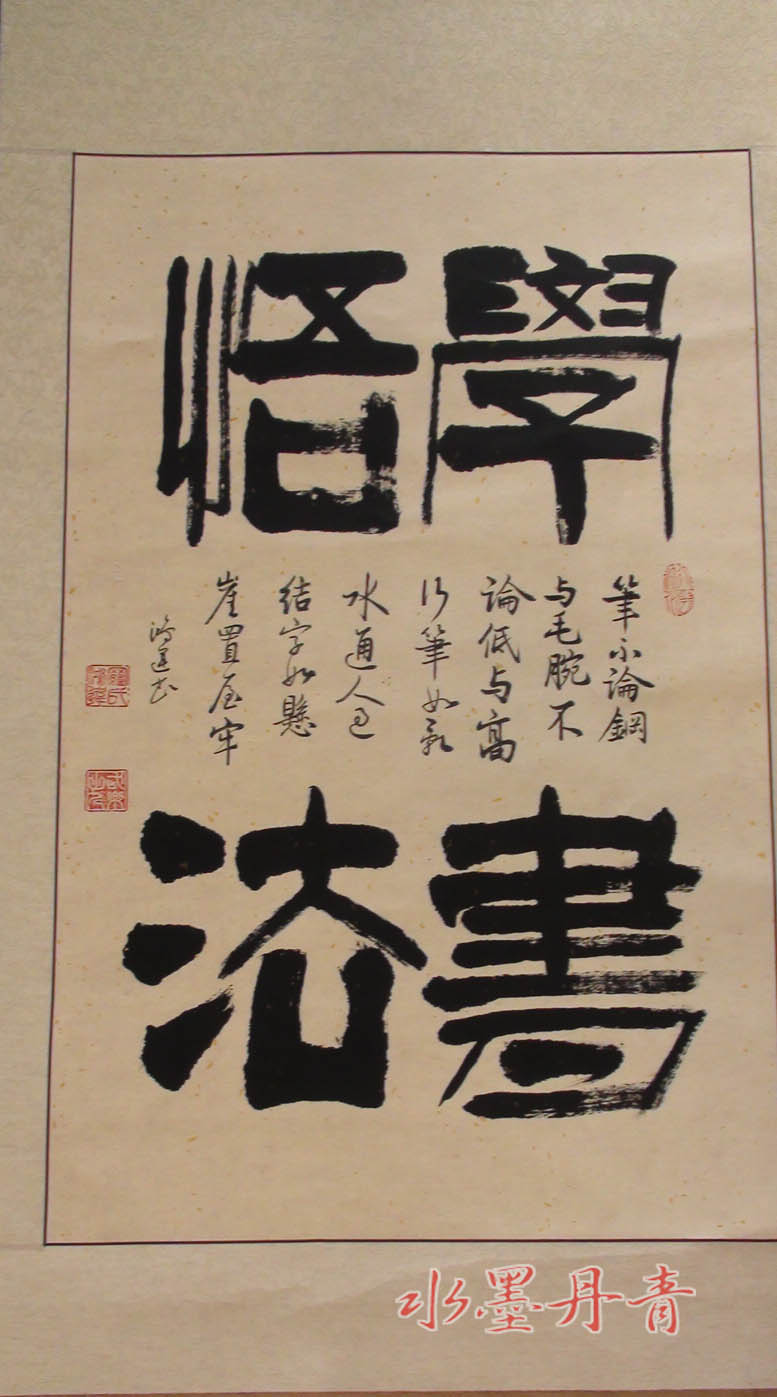 學書
悟法
筆不論鋼
与毛腕不
論低与高
行筆如
水通人
結字如懸
崖置屋牢
水墨丹青